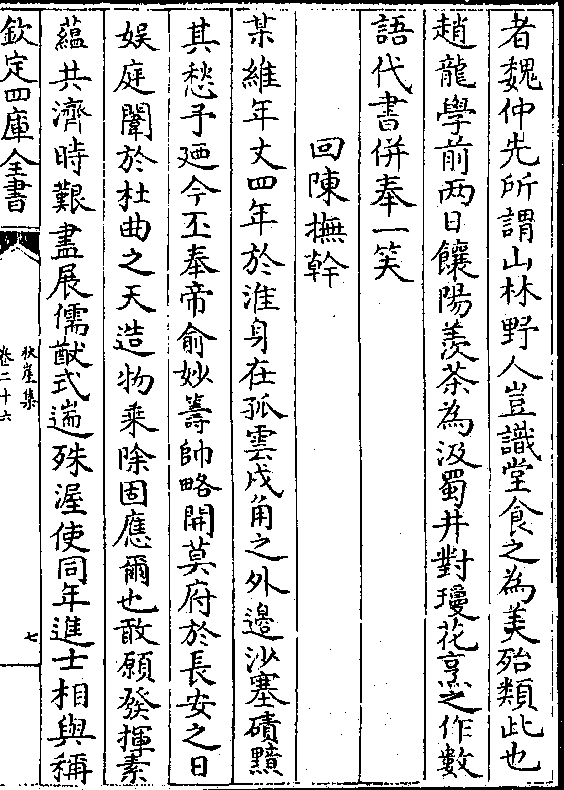 者魏仲先所謂山林野人豈識堂食之為美殆類此也
趙龍學前两日饟陽羡茶為汲蜀井對瓊花烹之作數
語代書併奉一笑
回陳撫幹
某維年丈四年於淮身在孤雲戍角之外邉沙塞磧黯
其愁予廼今丕奉帝俞妙籌帥略開莫府於長安之日
娯庭闈於杜曲之天造物乗除固應爾也敢願發揮素
蘊共濟時艱盡展儒猷式遄殊渥使同年進士相與稱
欽定四庫全書
秋崖集
卷二十六
七